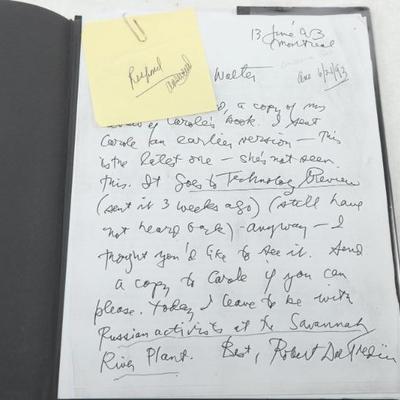 13 June 93
Montreal
ans 6/21/93
Refiled
answered
Walter
a copy of my
of Carole's book. I sent
Carole an earlier version — This
is the latest one — she's not seen
this. It goes to Technology Review
(sent it 3 weeks ago) (still have
not heard back) - anyway — I
thought you'd like to see it. Send
a copy to Carole if you can
please. Today I leave to be with
Russian activists at the Savannah
River Plant. Best, Robert Del Tredici